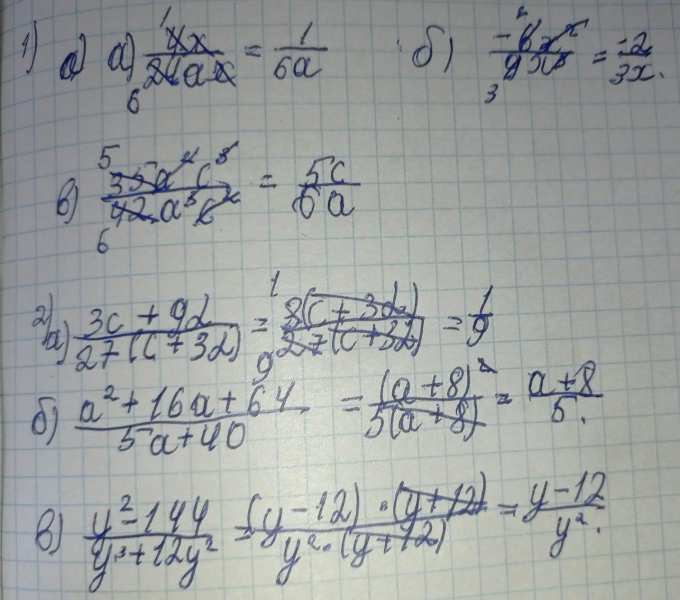 1) а) а) 4x/24ax = 1/6a б) -6x²/9x³ = -2/3x.
в) 35a²c³/42a³c² = 5c/6a
2) а) 3c + 9d/27(c + 3d) = 3(c + 3d)/27(c + 3d) = 1/9
б) a² + 16a + 64/5a + 40 = (a + 8)²/5(a + 8) = a + 8/5.
в) y² - 144/y³ + 12y² = (y - 12) · (y + 12)/y² · (y + 12) = y - 12/y².